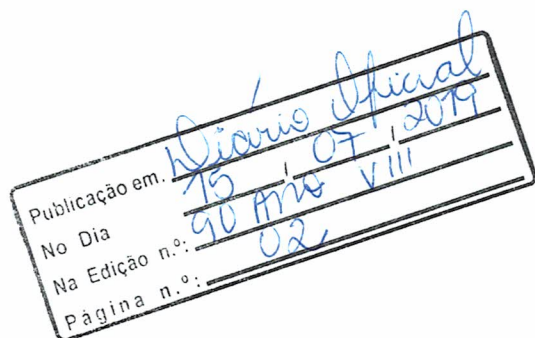 Publicação em. Diário Oficial
No Dia 15 / 07 / 2019
Na Edição n.º: 90 Ano VIII
Página n.º: 02